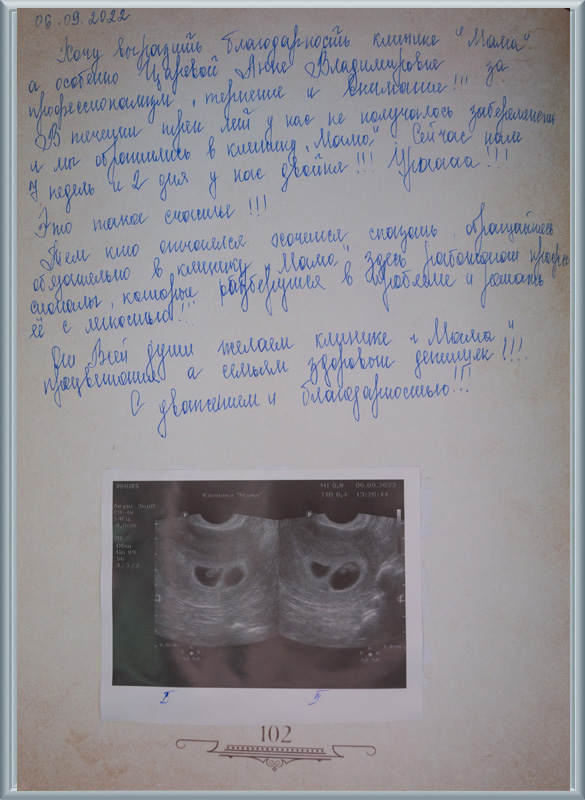 06.09.2022
Хочу выразить благодарность клинике "Мама"
а особенно Царевой Анне Владимировне за
профессионализм, терпение и внимание!!!
В течении трех лет у нас не получалось забеременеть
и мы обратились в клинику "Мама". Сейчас нам
7 недель и 2 дня у нас двойня!!! Урааааа!!!
Это такое счастье!!!
Тем кто отчаялся хочется сказать, обращайтесь
обязательно в клинику "Мама" здесь работают профес
сионалы, которые разберутся в проблеме и решать
её с легкостью!!!
От Всей души желаем клинике "Мама"
процветания а семьям здоровых детишек!!!
С уважением и благодарностью!!!
PHILIPS
Клиника "Мама"
MI 0,8 06.09.2022
TIS 0,4 13:20:44
C9-4v
2D
Общ
Gn 89
56
3/3/2
I
II
102